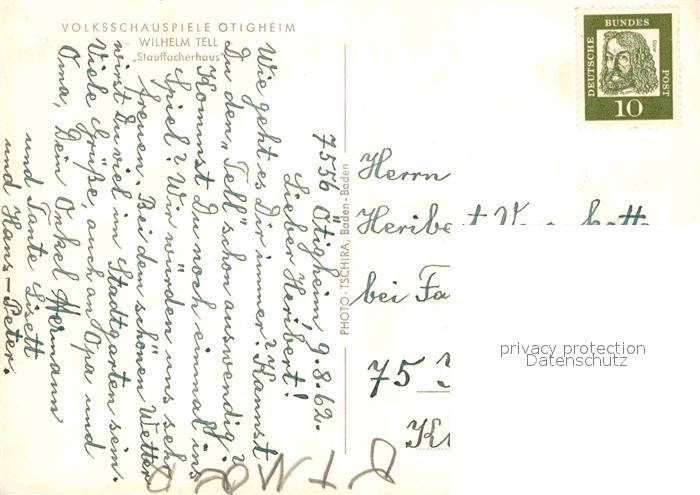 VOLKSSCHAUSPIELE ÖTIGHEIM
WILHELM TELL
„Stauffacherhaus"
7556 Ötigheim 9.8.62.
Lieber Heribert!
Wie geht es Dir immer? Kannst
Du den „Tell" schon auswendig?
Kommst Du noch einmal ins
Spiel? Wir würden uns sehr
freuen. Bei den schönen Wetter
wirst Du viel im Stadtgarten sein.
Viele Grüße, auch an Opa und
Oma, Dein Onkel Hermann
und Tante Lisett
und Hans-Peter.
PHOTO-TSCHIRA, Baden-Baden
DEUTSCHE BUNDES POST
Dürer
10
Herrn
Heribert
bei Fa
75
privacy protection
Datenschutz